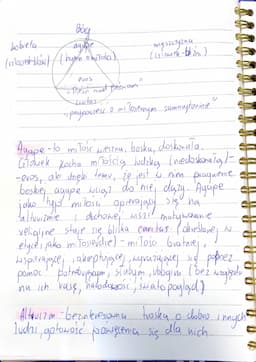 Bóg
kobieta agape mężczyzna
(człowiek-bliźni)
eros
"Pieśń nad pieśniami"
"przypowieść o miłosiernym samarytaninie"
Agape - to miłość wieczna, boska, doskonała.
Człowiek kocha miłością ludzką (niedoskonałą) -
- eros, ale dzięki temu, że jest w nim pragnienie
boskiej agape wciąż do niej dąży. Agape
jako typ miłości opierającej się na
altruizmie i duchowej więzi motywowanie
religijne staje się bliska caritas (określanej w
etyce jako miłosierdzie) - miłości bratniej,
wspierającej, akceptującej, wyrażającej się poprzez
pomoc potrzebującym, słabym, ubogim (bez względu
na ich rasę, narodowość, światopogląd)
Altruizm - bezinteresowna troska o dobro innych
ludzi, gotowość poświęcenia się dla nich.